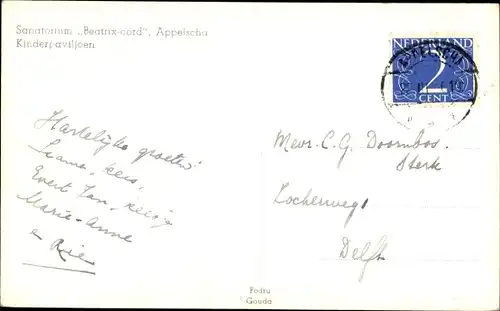 Sanatorium „Beatrix-oord", Appelscha
Kinderpaviljoen
NEDERLAND
2
CENT
APPELSCHA
Hartelijke groeten
Kees,
Evert Jan,
Marie-Anne
& Rie
Mevr. C. G. Doornbos
Sterk
Delft
Fodru
Gouda